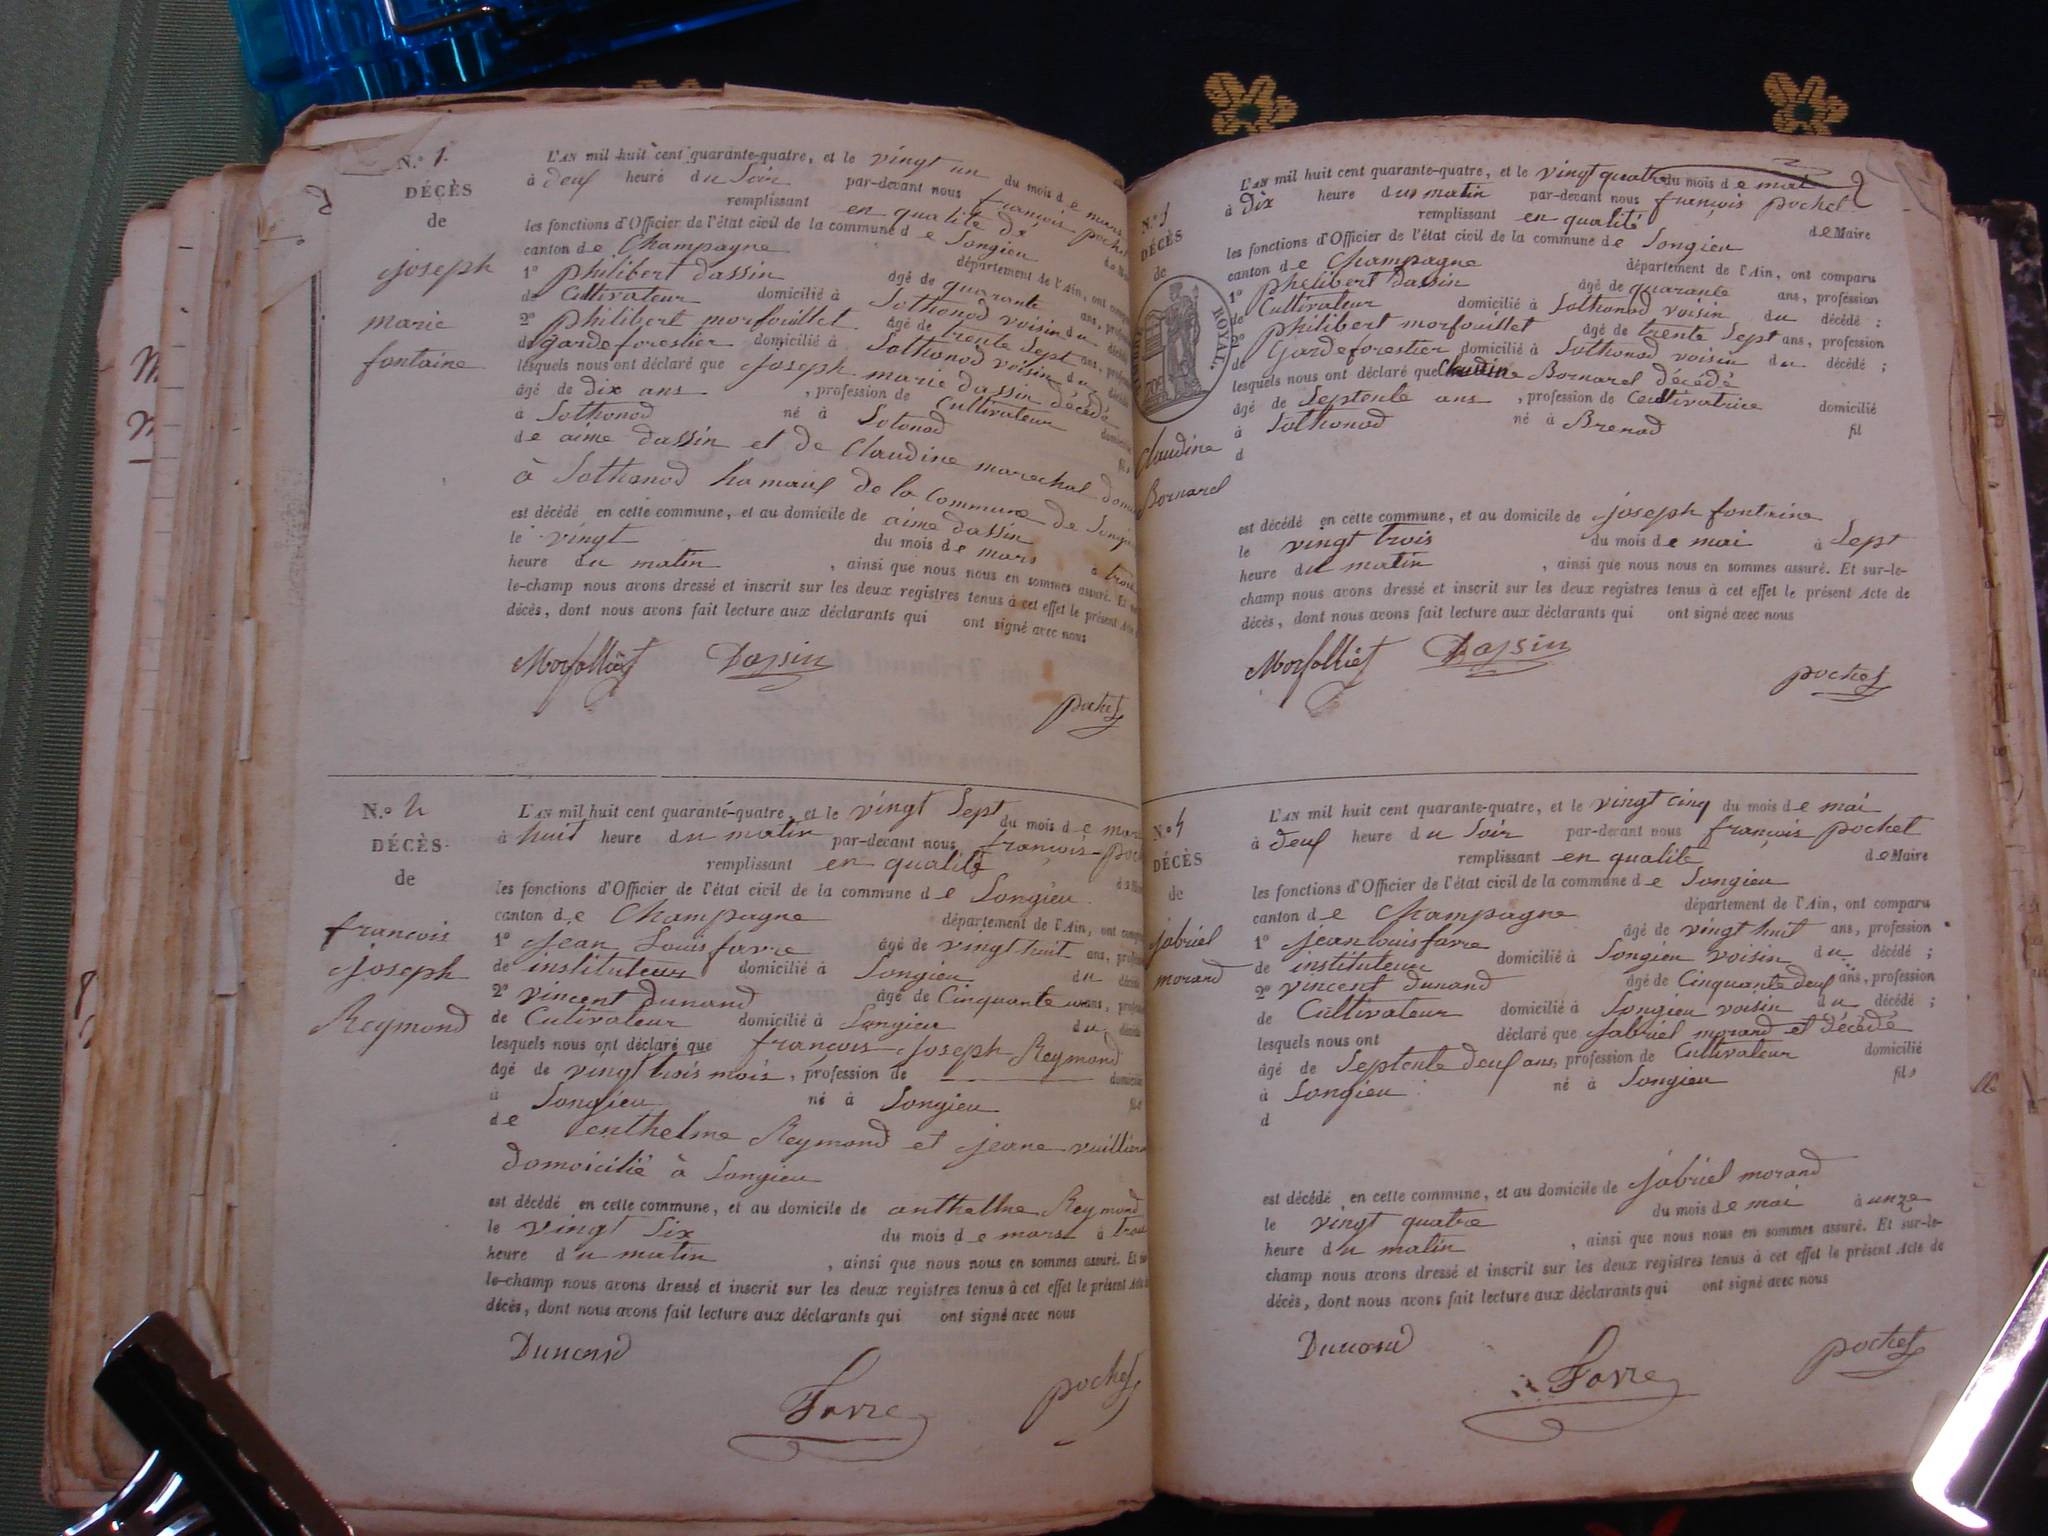 N.º 1.
DÉCÈS
de
joseph
marie
fontaine
L'AN mil huit cent quarante-quatre, et le vingt un du mois de mars
à deux heure du Soir par-devant nous françois pochet
remplissant en qualité de
les fonctions d'Officier de l'état civil de la commune de Songieu
canton de Champagne département de l'Ain, ont
1º philibert dassin âgé de quarante ans,
de Cultivateur domicilié à Sothonod voisin du
2º philibert morfouillet âgé de trente Sept ans,
de garde forestier domicilié à Sothonod voisin du
lesquels nous ont déclaré que joseph marie dassin décédé
âgé de dix ans , profession de Cultivateur
à Sothonod né à Sotonod
de aime dassin et de Claudine marechal
à Sothonod hamaux de la Commune de
est décédé en cette commune, et au domicile de aime dassin
le vingt du mois de mars à
heure du matin , ainsi que nous nous en sommes assuré. Et
le-champ nous avons dressé et inscrit sur les deux registres tenus à cet effet le présent Acte
décès, dont nous avons fait lecture aux déclarants qui ont signé avec nous
Morfolliet Dassin
pochet
N.º 2
DÉCÈS
de
francois
joseph
Reymond
L'AN mil huit cent quarante-quatre, et le vingt Sept du mois de
à huit heure du matin par-devant nous françois
remplissant en qualité
les fonctions d'Officier de l'état civil de la commune de Songieu
canton de Champagne département de l'Ain, ont
1º jean Louis favre âgé de vingt huit ans,
de instituteur domicilié à Songieu du
2º vincent Dunand âgé de Cinquante
de Cutivateur domicilié à Songieu du
lesquels nous ont déclaré que françois joseph Reymond
âgé de vingt trois mois , profession de
à Songieu né à Songieu
de enthelme Reymond et jeane
domoicilié à Songieu
est décédé en cette commune, et au domicile de anthelme Reymond
le vingt Six du mois de mars à
heure du matin , ainsi que nous nous en sommes assuré. Et
le-champ nous avons dressé et inscrit sur les deux registres tenus à cet effet le présent Acte
décès, dont nous avons fait lecture aux déclarants qui ont signé avec nous
Dunand
Favre
pochet
N.º 3
DÉCÈS
de
ROYAL.
Claudine
Bornarel
L'AN mil huit cent quarante-quatre, et le vingt quatre du mois de mai
à dix heure du matin par-devant nous françois pochet
remplissant en qualité de Maire
les fonctions d'Officier de l'état civil de la commune de Songieu
canton de Champagne département de l'Ain, ont comparu
1º philibert dassin âgé de quarante ans, profession
de Cultivateur domicilié à Sothonod voisin du décédé ;
2º philibert morfouillet âgé de trente Sept ans, profession
de garde forestier domicilié à Sothonod voisin du décédé ;
lesquels nous ont déclaré que Claudine Bornarel décédé
âgé de Septente ans , profession de Ceultivatrice domicilié
à Sothonod né à Brenod fil
d
est décédé en cette commune, et au domicile de joseph fontaine
le vingt trois du mois de mai à Sept
heure du matin , ainsi que nous nous en sommes assuré. Et sur-le-
champ nous avons dressé et inscrit sur les deux registres tenus à cet effet le présent Acte de
décès, dont nous avons fait lecture aux déclarants qui ont signé avec nous
Morfolliet Dassin
pochet
N.º 4
DÉCÈS
de
jabriel
morand
L'AN mil huit cent quarante-quatre, et le vingt cinq du mois de mai
à deux heure du Soir par-devant nous françois pochet
remplissant en qualité de Maire
les fonctions d'Officier de l'état civil de la commune de Songieu
canton de Champagne département de l'Ain, ont comparu
1º jean louis favre âgé de vingt huit ans, profession
de instituteur domicilié à Songieu voisin du décédé ;
2º vincent dunand âgé de Cinquante deux ans, profession
de Cultivateur domicilié à Songieu voisin du décédé ;
lesquels nous ont déclaré que jabriel morand et décédé
âgé de Septente deux ans, profession de Cultivateur domicilié
à Songieu né à Songieu fils
d
est décédé en cette commune, et au domicile de jabriel morand
le vingt quatre du mois de mai à unze
heure du matin , ainsi que nous nous en sommes assuré. Et sur-le-
champ nous avons dressé et inscrit sur les deux registres tenus à cet effet le présent Acte de
décès, dont nous avons fait lecture aux déclarants qui ont signé avec nous
Dunand
Favre
pochet